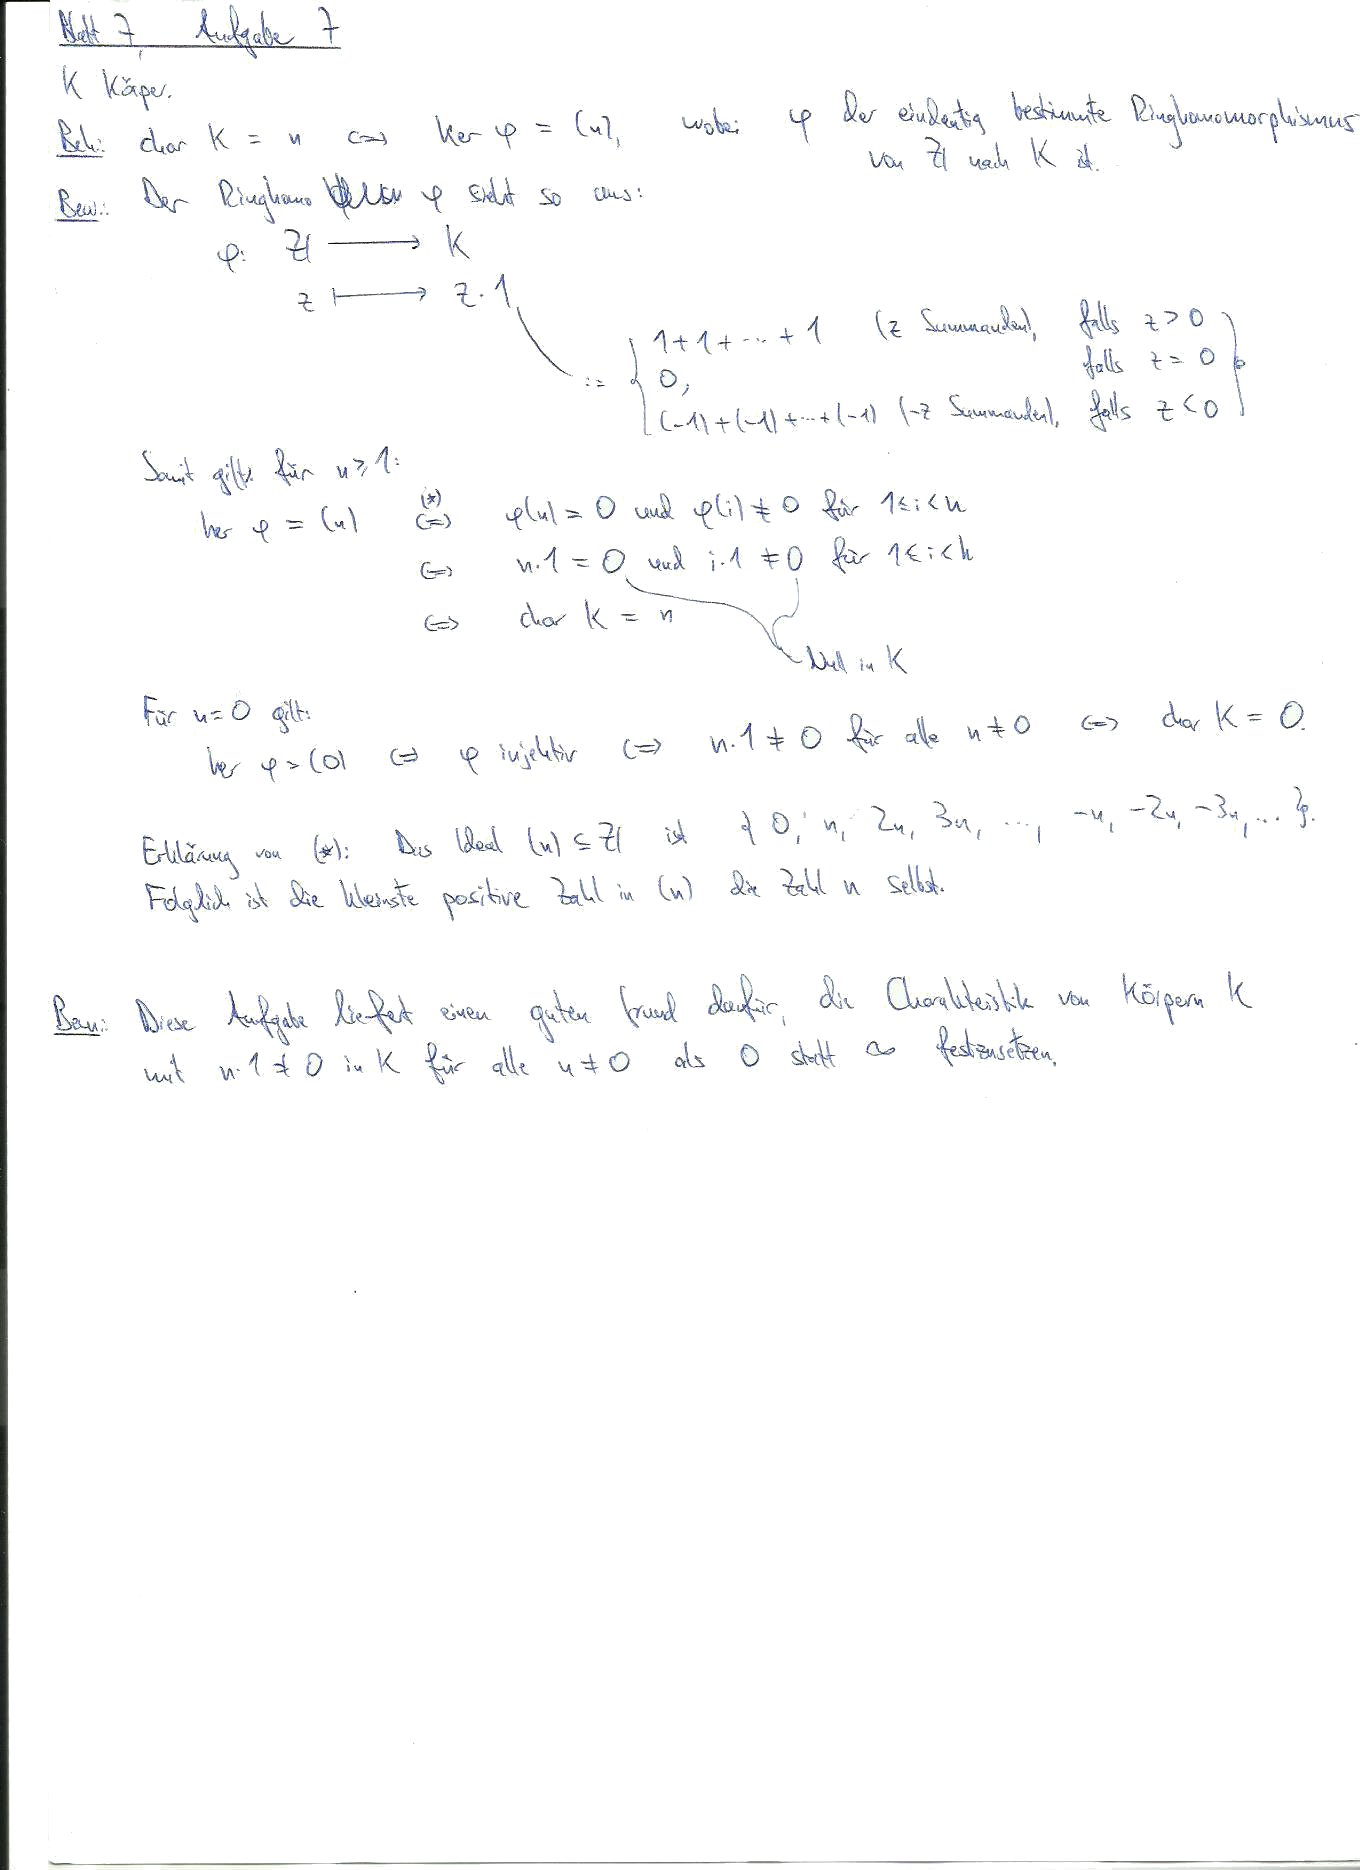 Blatt 7, Aufgabe 7
K Körper.
Beh.: char K = n ⟺ ker φ = (n), wobei φ der eindeutig bestimmte Ringhomomorphismus
von ℤ nach K ist.
Bew.: Der Ringhomo φ sieht so aus:
φ: ℤ ⟶ K
z ⟼ z·1
:= { 1+1+⋯+1 (z Summanden), falls z>0
0, falls z=0
(-1)+(-1)+⋯+(-1) (-z Summanden), falls z<0 }.
Somit gilt für n≥1:
ker φ = (n) (*) ⟺ φ(n) = 0 und φ(i) ≠ 0 für 1≤i<n
⟺ n·1 = 0 und i·1 ≠ 0 für 1≤i<n
⟺ char K = n
Null in K
Für n=0 gilt:
ker φ = (0) ⟺ φ injektiv ⟺ n·1 ≠ 0 für alle n≠0 ⟺ char K = 0.
Erklärung von (*): Das Ideal (n) ⊆ ℤ ist { 0, n, 2n, 3n, ..., -n, -2n, -3n, ... }.
Folglich ist die kleinste positive Zahl in (n) die Zahl n selbst.
Bem.: Diese Aufgabe liefert einen guten Grund dafür, die Charakteristik von Körpern K
mit n·1≠0 in K für alle n≠0 als 0 statt ∞ festzusetzen.